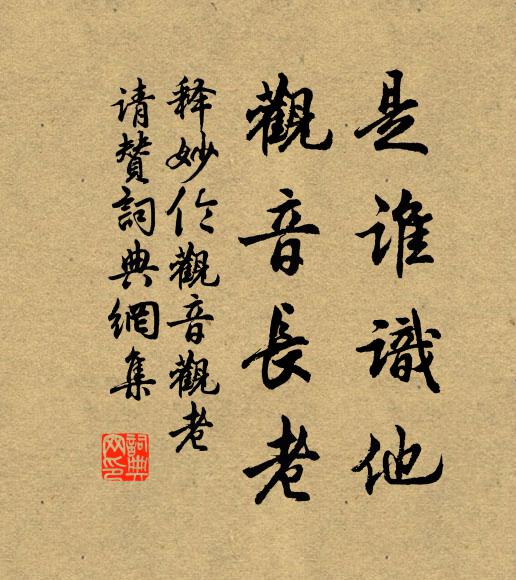 是誰識他
觀音長老
释妙伦觀音觀老
请贊詞典網集
詞典网印